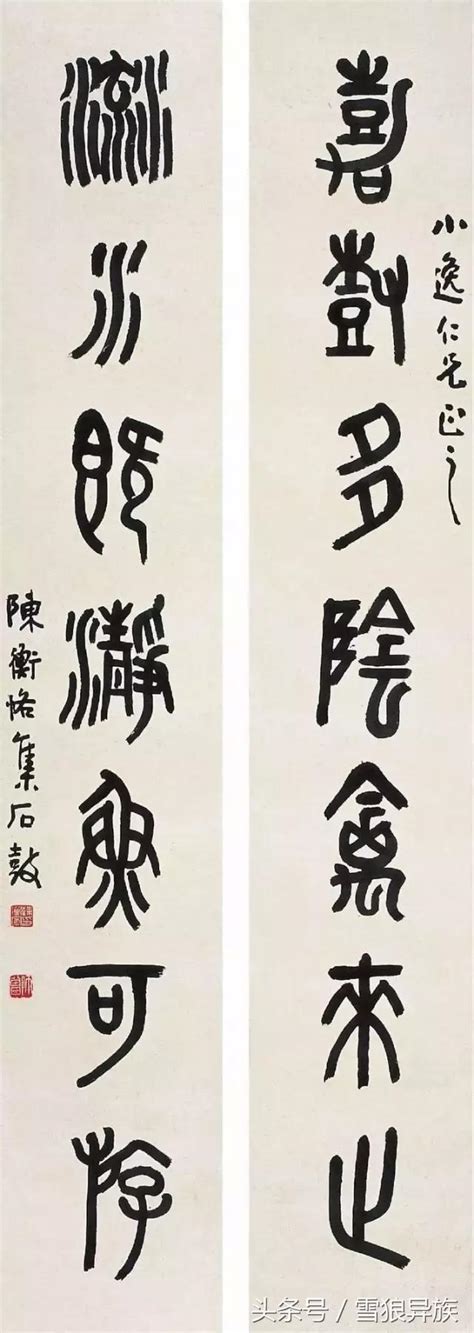 小逸仁兄正之
嘉樹多陰禽來止
流水既瀞魚可斿
陳衡恪集石鼓
头条号 / 雪狼异族